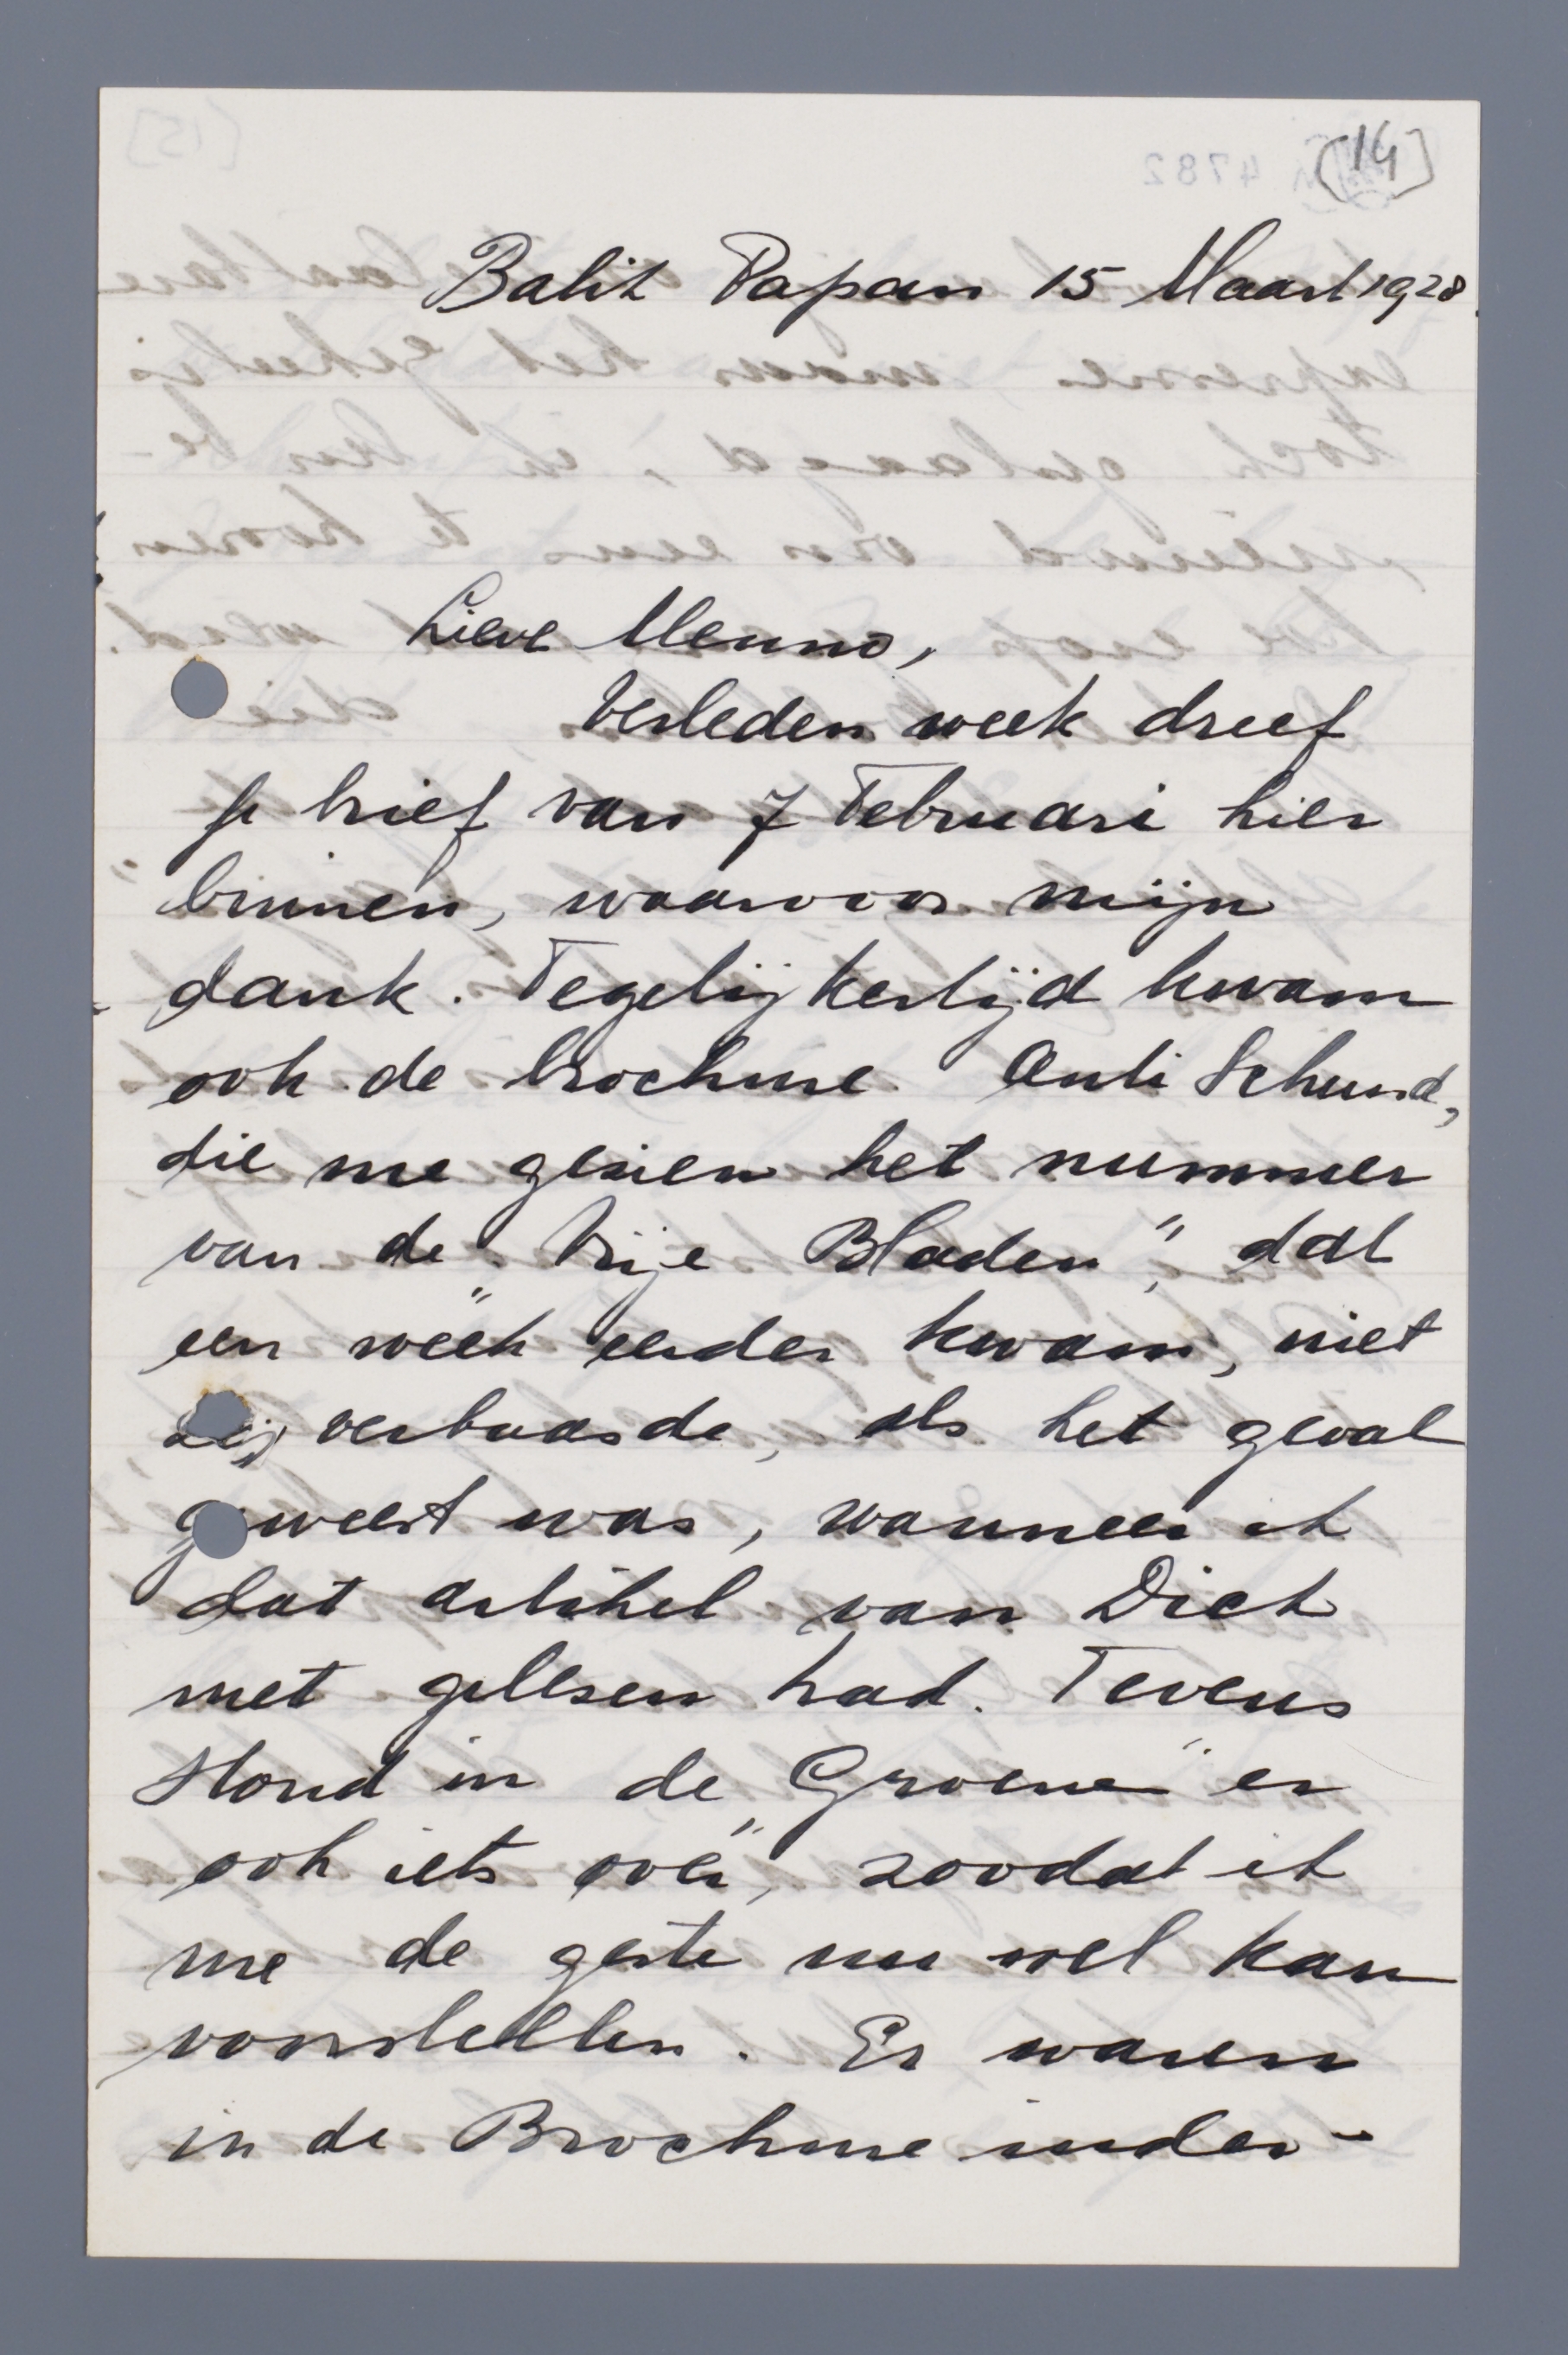 [14]
Balik Papan 15 Maart 1928.
Lieve Menno,
Verleden week dreef
je brief van 7 Februari hier
binnen, waarvoor mijn
dank. Tegelijkertijd kwam
ook de brochure Anti Schund,
die me gezien het nummer
van de „Vrije Bladen", dat
een week eerder kwam, niet
verbaasde, als het geval
geweest was, wanneer ik
dat artikel van Dick
niet gelezen had. Tevens
stond in de „Groene" er
ook iets over, zoodat ik
me de geste nu wel kan
voorstellen. Er waren
in de Brochure inder-